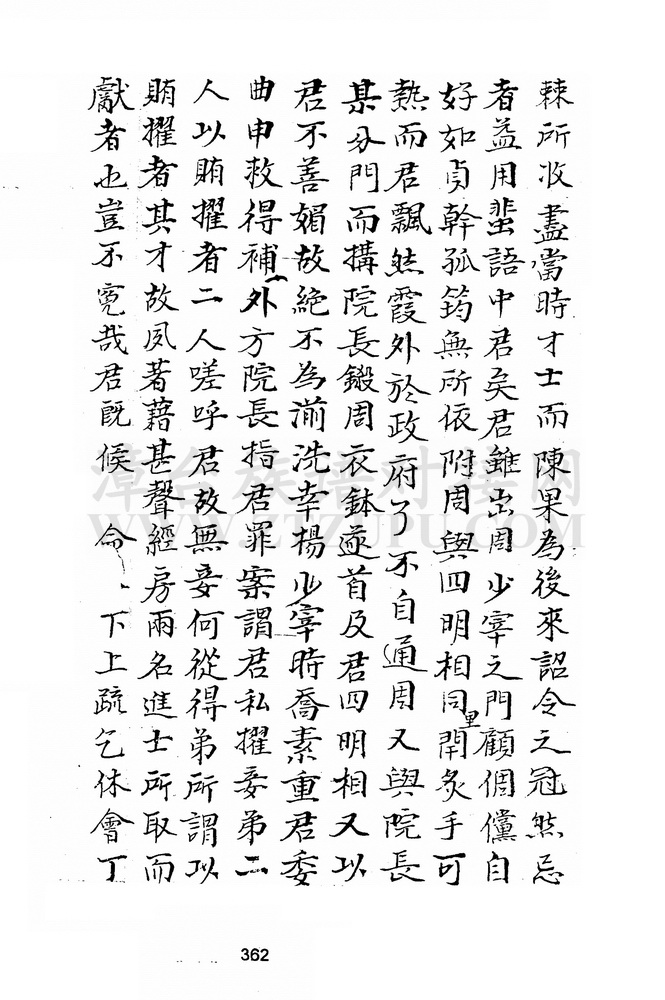 棘所收盡當時才士而陳果為後來詔令之冠然忌
者益用蜚語中君矣君雖出周少宰之門顧倜儻自
好如貞幹孤筠無所依附周與四明相同里閈炙手可
熱而君飄然霞外於政府了不自通周又與院長
某分門而搆院長鍛周衣鉢遂首及君四明相又以
君不善媚故絕不為湔洗幸楊少宰時喬素重君委
曲申救得補外方院長指君罪案謂君私擢妾弟二
人以賄擢者二人嗟呼君故無妾何從得弟所謂以
賄擢者其才故夙著藉甚聲經房兩名進士所取而
獻者也豈不寃哉君既候 命下上疏乞休會丁
漳台族谱对接网
WWW.ZTZUPU.COM
362